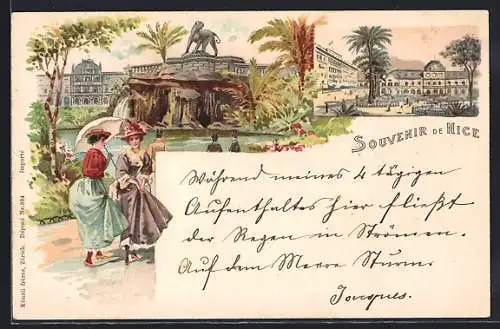 SOUVENIR DE NICE
Während meines 4 tägigen
Aufenthaltes hier fließt
der Regen in Strömen.
Auf dem Meere Sturm.
Jacques.
Künzli frères, Zürich. Déposé No. 894 Importé